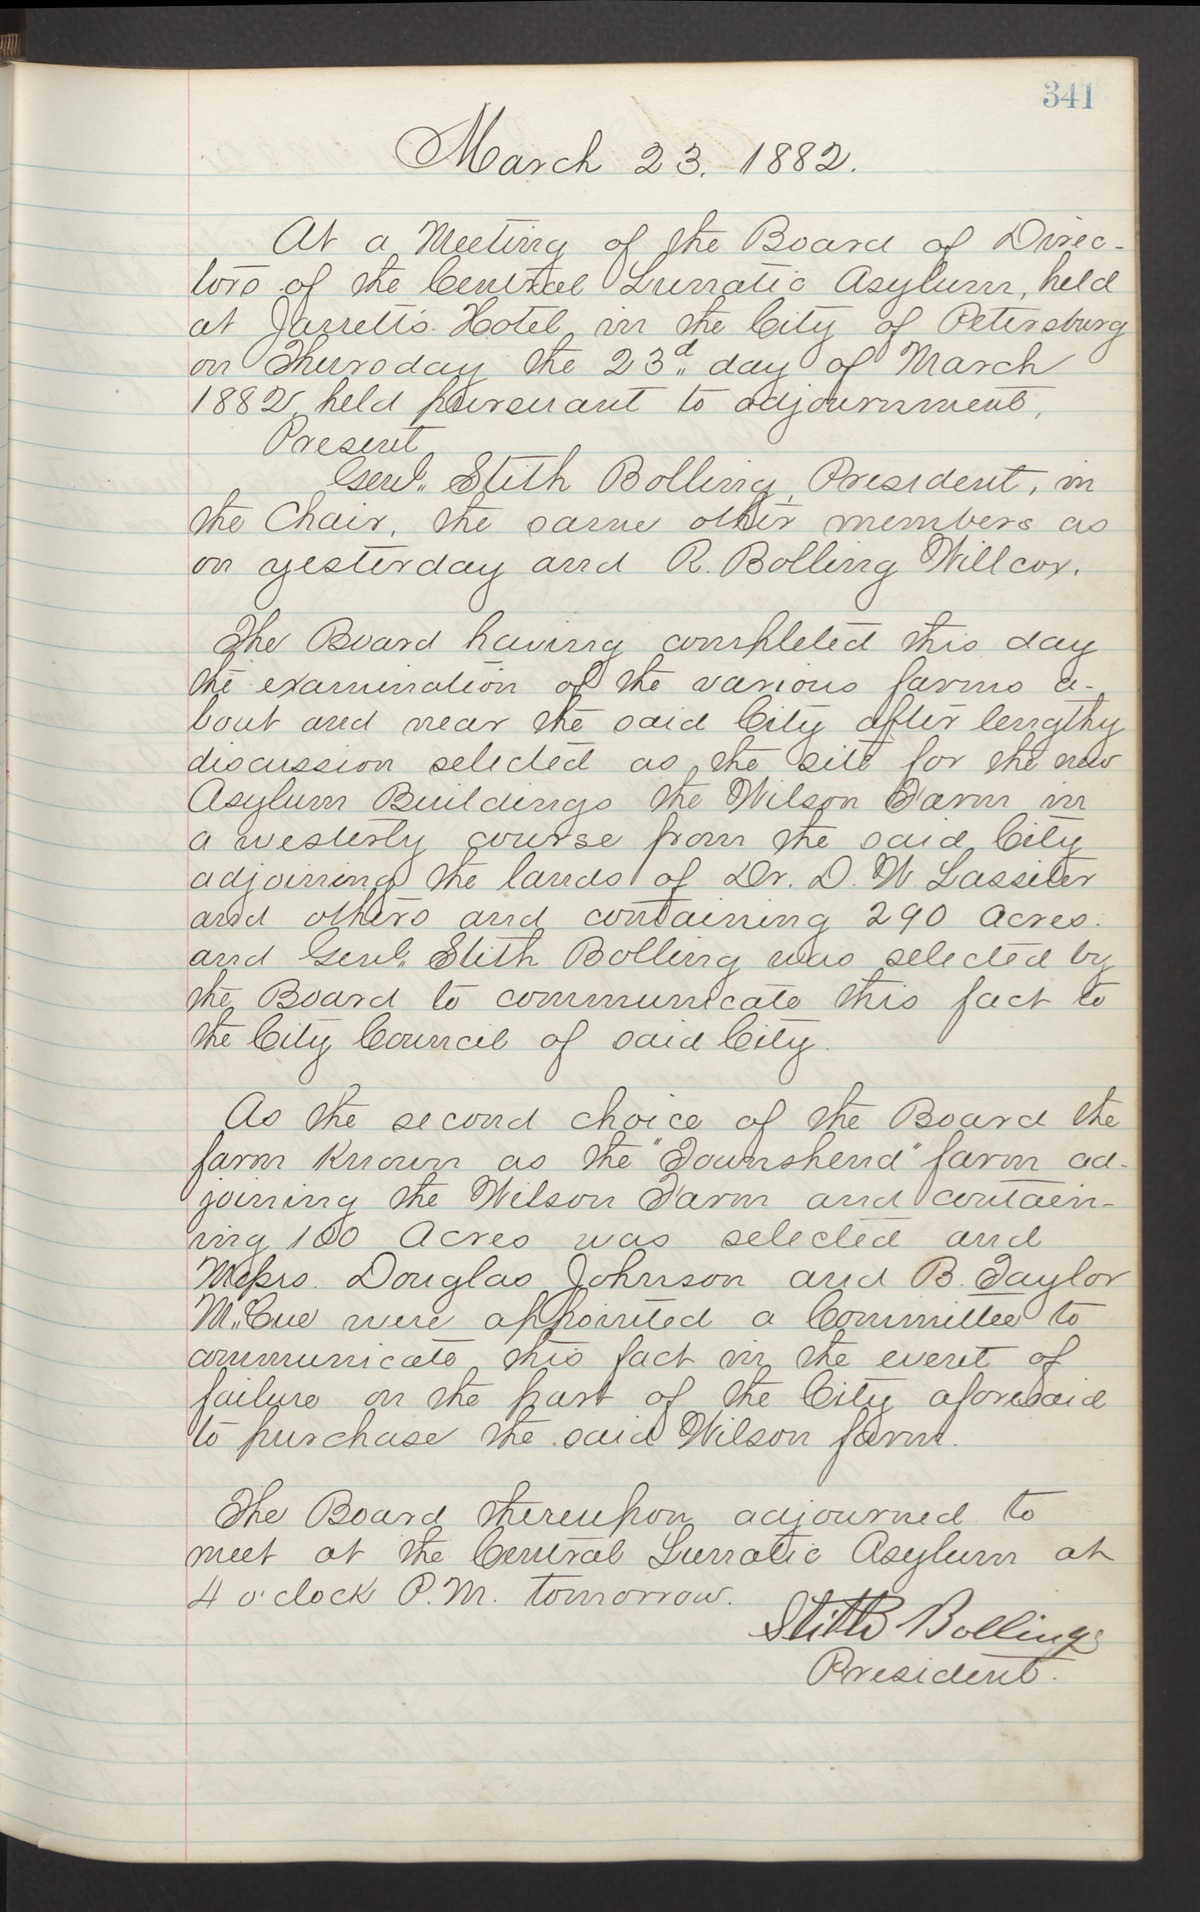 341
March 23. 1882.
At a Meeting of the Board of Direc-
tors of the Central Lunatic Asylum, held
at Jarrett's Hotel, in the City of Petersburg
on Thursday the 23d day of March
1882, held pursuant to adjournment,
Present
Genl. Stith Bolling, President, in
the Chair, the same other members as
on yesterday and R. Bolling Willcox.
The Board having completed this day
the examination of the various farms a-
bout and near the said City after lengthy
discussion selected as the site for the new
Asylum Buildings the Wilson Farm in
a westerly course from the said City
adjoining the lands of Dr. D. W. Lassiter
and others and containing 290 Acres.
and Genl. Stith Bolling was selected by
the Board to communicate this fact to
the City Council of said City.
As the second choice of the Board the
farm Known as the "Townshend" farm ad-
joining the Wilson Farm and contain-
ing 100 Acres was selected and
Messrs. Douglas Johnson and B. Taylor
McCue were appointed a Committee to
communicate this fact in the event of
failure on the part of the City aforesaid
to purchase the said Wilson farm.
The Board thereupon adjourned to
meet at the Central Lunatic Asylum at
4 o'clock P.M. tomorrow.
Stith Bolling
President.